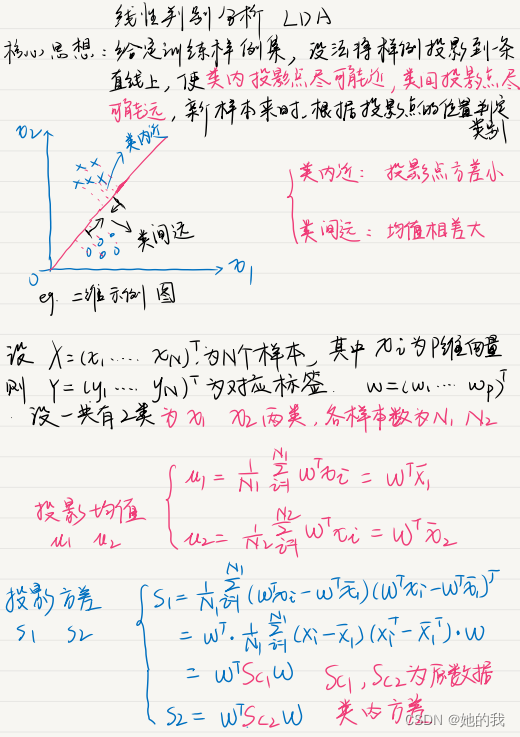 线性判别分析 LDA
核心思想：给定训练样例集，设法将样例投影到一条
直线上，使类内投影点尽可能近，类间投影点尽
可能远，新样本来时，根据投影点的位置判定
类别
x₂
类内近
类间远
0
x₁
eg. 二维示例图
类内近：投影点方差小
类间远：均值相差大
设 X=(x₁..... x_N)ᵀ为N个样本，其中 xi为P维向量
则 Y=(y₁.... y_N)ᵀ为对应标签. w=(w₁... w_p)ᵀ
设一共有2类为 x₁ x₂ 两类，各样本数为N₁ N₂
投影均值
u₁ u₂
u₁ = 1/N₁ Σ_{i=1}^{N₁} wᵀxi = wᵀx̄₁
u₂ = 1/N₂ Σ_{i=1}^{N₂} wᵀxi = wᵀx̄₂
投影方差
S₁ S₂
S₁ = 1/N₁ Σ_{i=1}^{N₁} (wᵀxi - wᵀx̄₁)(wᵀxi - wᵀx̄₁)ᵀ
= wᵀ · 1/N₁ Σ_{i=1}^{N₁} (xi - x̄₁)(xiᵀ - x̄₁ᵀ) · w
= wᵀS_{c1}w
S_{c1}, S_{c2}为原数据
类内方差
S₂ = wᵀS_{c2}w
CSDN @她的我